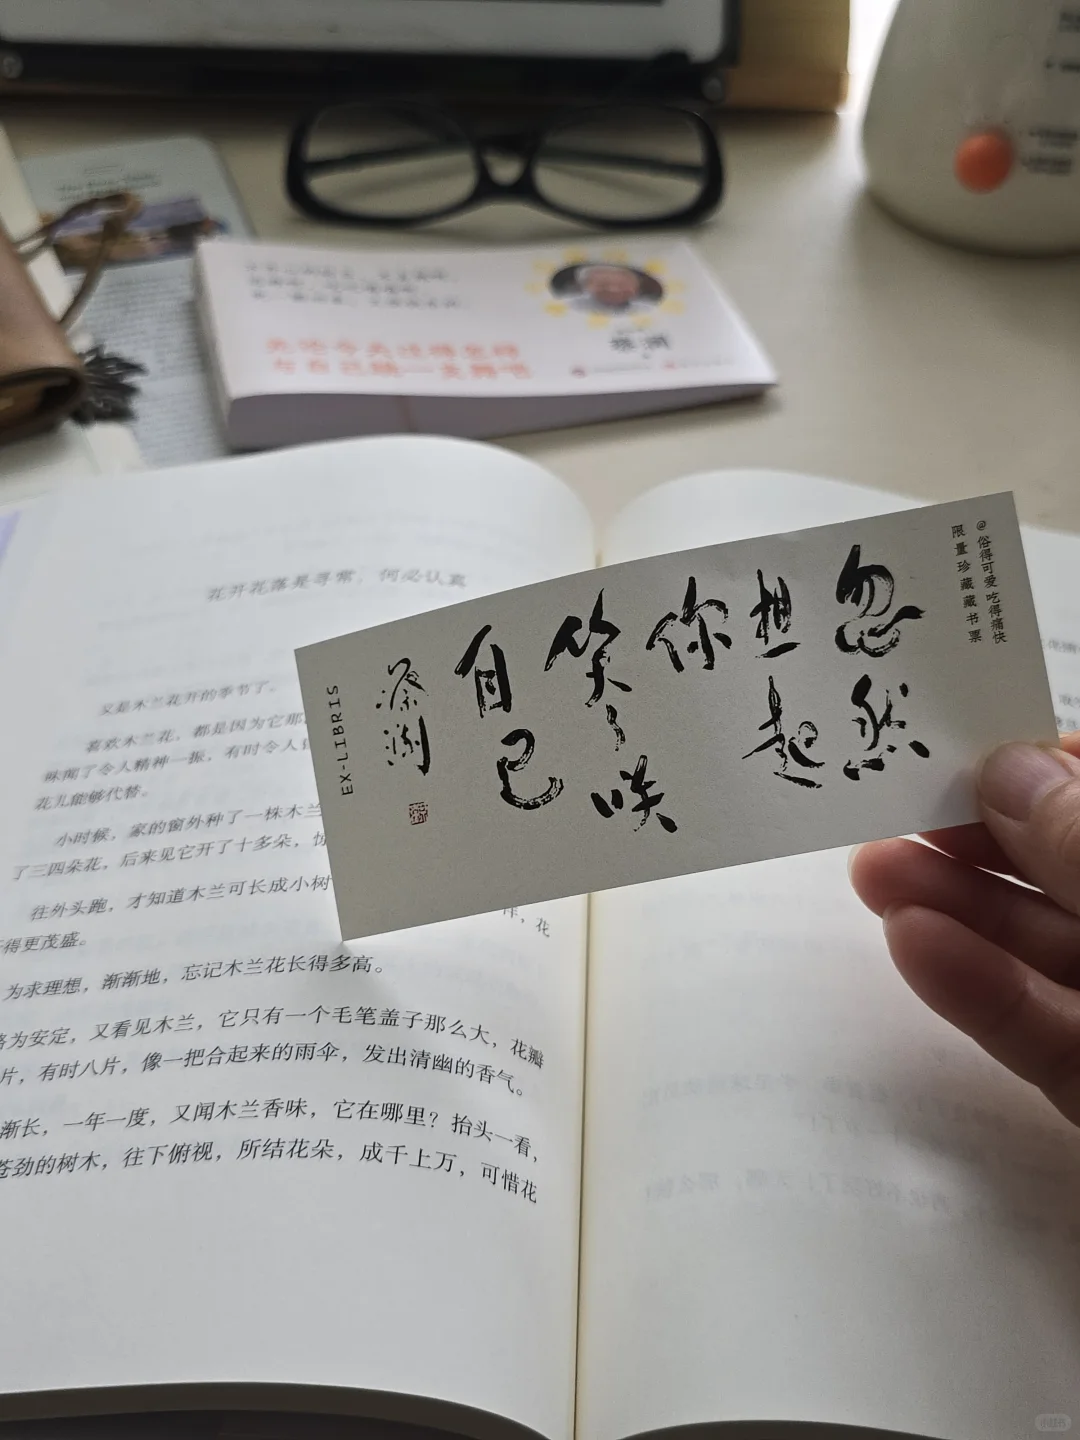 @俗得可爱 吃得痛快
限量珍藏藏书票
忽然
想起
你
笑了咲
自己
蔡澜
EX-LIBRIS
花开花落是寻常，何必认真
又是木兰花开的季节了。
喜欢木兰花，都是因为它那
味闻了令人精神一振，有时令人
花儿能够代替。
小时候，家的窗外种了一株木兰
了三四朵花，后来见它开了十多朵，惊
往外头跑，才知道木兰可长成小树
，花
得更茂盛。
为求理想，渐渐地，忘记木兰花长得多高。
为安定，又看见木兰，它只有一个毛笔盖子那么大，花瓣
片，有时八片，像一把合起来的雨伞，发出清幽的香气。
渐长，一年一度，又闻木兰香味，它在哪里？抬头一看，
苍劲的树木，往下俯视，所结花朵，成千上万，可惜花